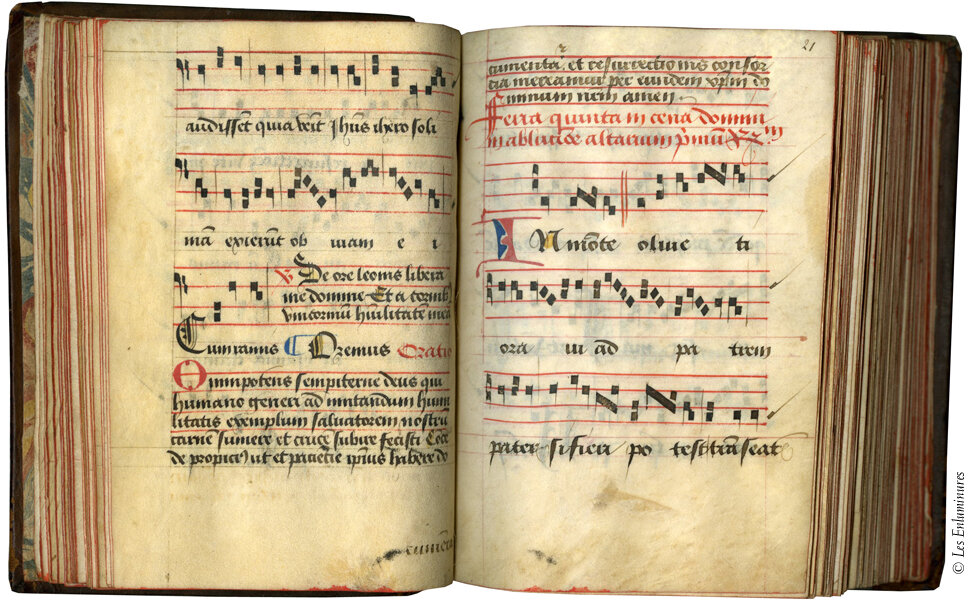 audissent quia venit Jhūs ihero soli
mā exierūt ob uiam e i
℣ De ore leonis libera
me domine Et a cornib
unicornuū huīlitatē meā
Cum ramis ¶ Oremus Oratio
Omnipotens sempiterne deus qui
humano generi ad imitandum humi
litatis exemplum saluatorem nostrū
carnē sumere et crucē subire fecisti Cōce
de propici9 ut et paciētie ipsius habere do
cumēta
21
cumenta et resurrectionis consor
cia mereamur per eundem xp̄m do
minum nr̄m amen
Feria quinta in cena domini
in ablucōe altarium p̄mū ℟m
IN mōte oliue ti
ora ui ad pa trem
pater si fieri po test trāseat
© Les Enluminures